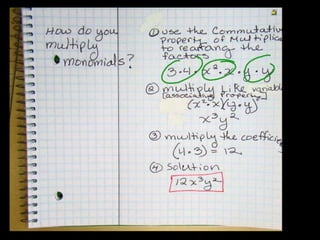 How do you
multiply
monomials?
① use the Commutative
Property of Multiplica
to rearrang the
factors
3·4 · x²·x · y·y
② multiply Like variable
[associative Property]
(x²·x)(y·y)
x³y²
③ multiply the coefficie
(4·3) = 12
④ Solution
12x³y²